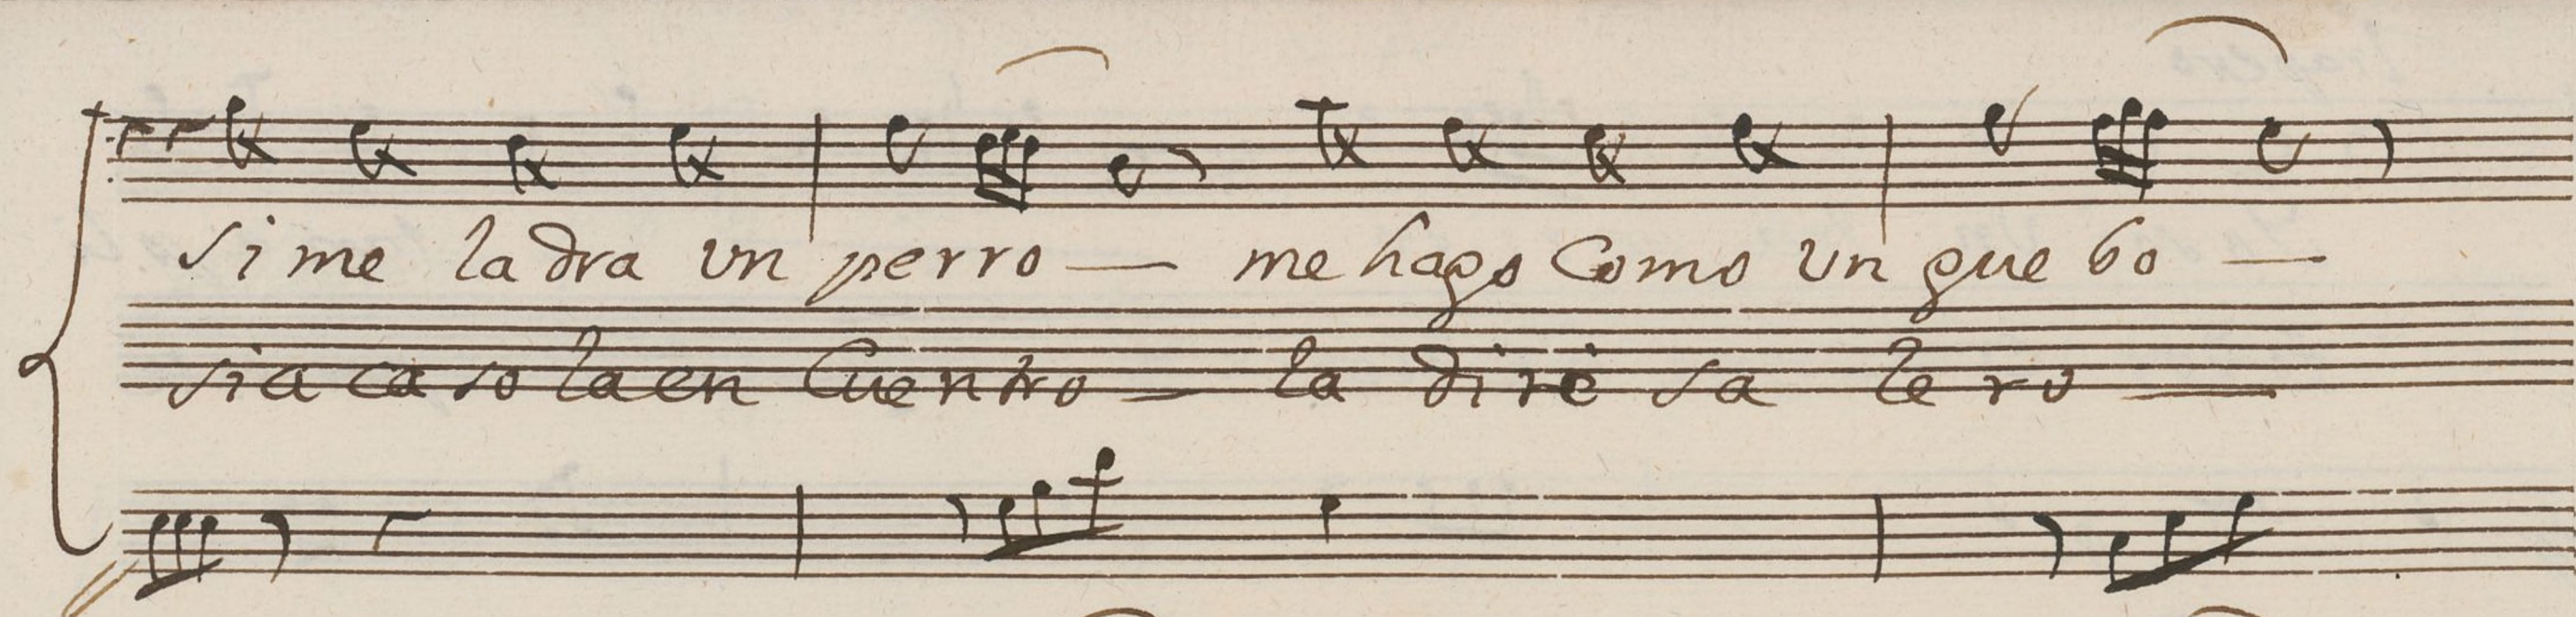 si me ladra un perro — me hago Como un guebo —
si acaso la en Cuentro — la diré salero —